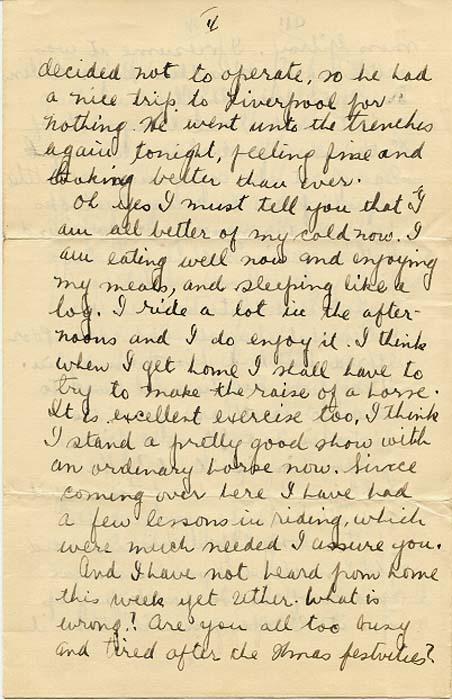 4
decided not to operate, so he had
a nice trip to Liverpool for
nothing. He went unto the trenches
again tonight, feeling fine and
looking better than ever.
Oh yes I must tell you that I
am all better of my cold now. I
am eating well now and enjoying
my meals, and sleeping like a
log. I ride a lot in the after-
noons and I do enjoy it. I think
when I get home I shall have to
try to make the raise of a horse.
It is excellent exercise too, I think
I stand a pretty good show with
an ordinary horse now. Since
coming over here I have had
a few lessons in riding, which
were much needed I assure you.
And I have not heard from home
this week yet either. What is
wrong? Are you all too busy
and tired after the Xmas festivities?